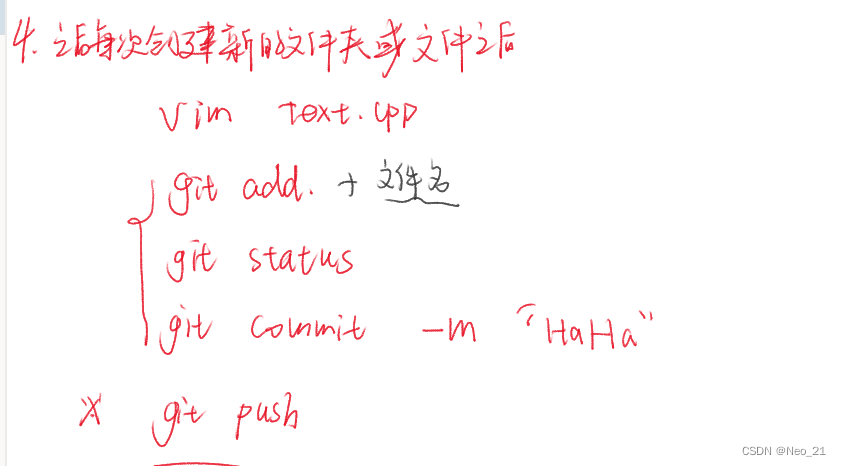 4. 之后每次创建新的文件夹或文件之后
vim text.cpp
git add. + 文件名
git status
git commit -m "HaHa"
※ git push
CSDN @Neo_21